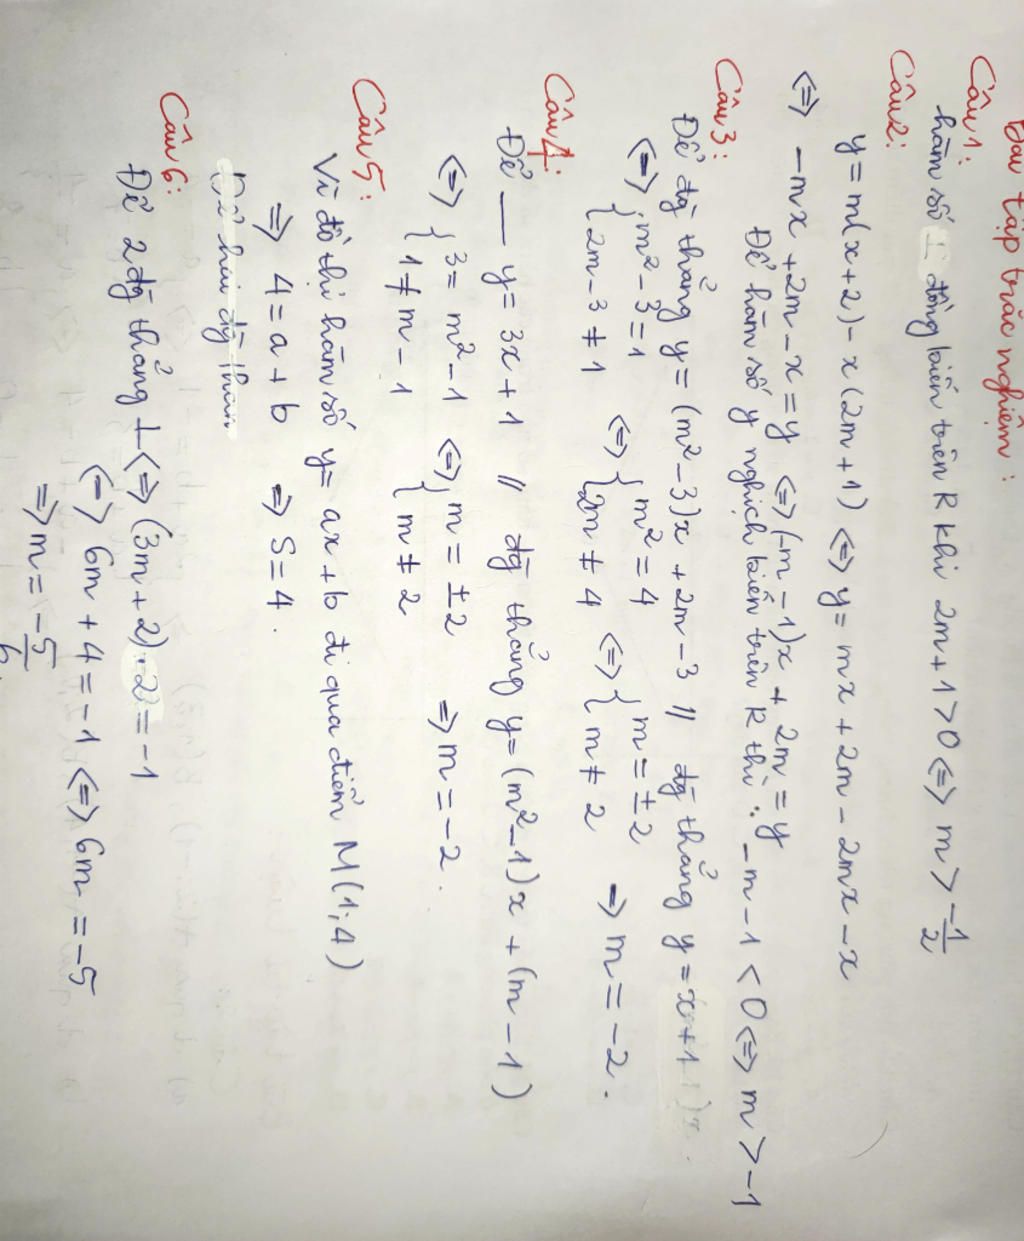 Bài tập trắc nghiệm :
Câu 1:
hàm số đồng biến trên R khi 2m+1>0 <=> m > -1/2
Câu 2:
y = m(x+2) - x(2m+1) <=> y = mx + 2m - 2mx - x
<=> -mx + 2m - x = y <=> (-m-1)x + 2m = y
Để hàm số y nghịch biến trên R thì: -m-1 < 0 <=> m > -1
Câu 3:
Để đg thẳng y = (m²-3)x + 2m-3 // đg thẳng y = x+1
<=> { m²-3=1 <=> { m²=4 <=> { m=±2 => m=-2.
{ 2m-3 ≠ 1 { 2m ≠ 4 { m ≠ 2
Câu 4:
Để — y = 3x+1 // đg thẳng y = (m²-1)x + (m-1)
<=> { 3 = m²-1 <=> { m = ±2 => m = -2.
{ 1 ≠ m-1 { m ≠ 2
Câu 5:
Vì đồ thị hàm số y = ax + b đi qua điểm M(1;4)
=> 4 = a + b => S = 4.
Để hai đg
Câu 6:
Để 2 đg thẳng ⊥ <=> (3m+2).2 = -1
<=> 6m + 4 = -1 <=> 6m = -5
=> m = -5/6